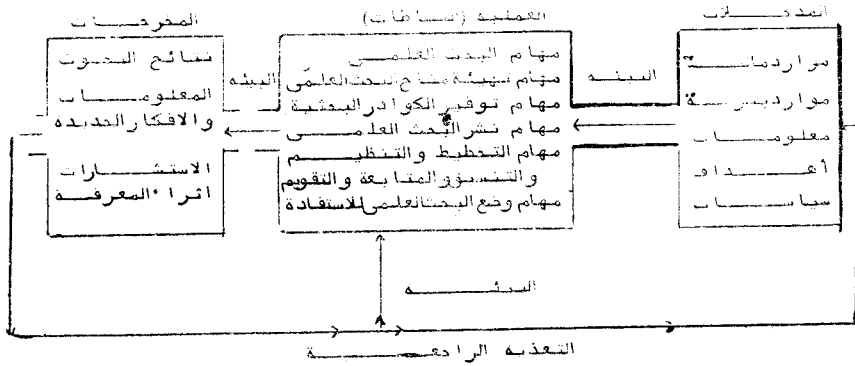 المدخلات
موارد مادية
موارد بشرية
معلومات
أهداف
سياسات
البيئه
العمليه (نشاطات)
مهام البحث العلمى
مهام تهيئة مناخ البحث العلمى
مهام توفير الكوادر البحثية
مهام نشر البحث العلمى
مهام التخطيط والتنظيم
والتنسيق والمتابعة والتقويم
مهام وضع البحث العلمى للاستفادة
البيئه
المخرجات
نتائج البحوث
المعلومات
والافكار الجديده
الاستشارات
اثراء المعرفة
البيئه
التغذيه الراجعة